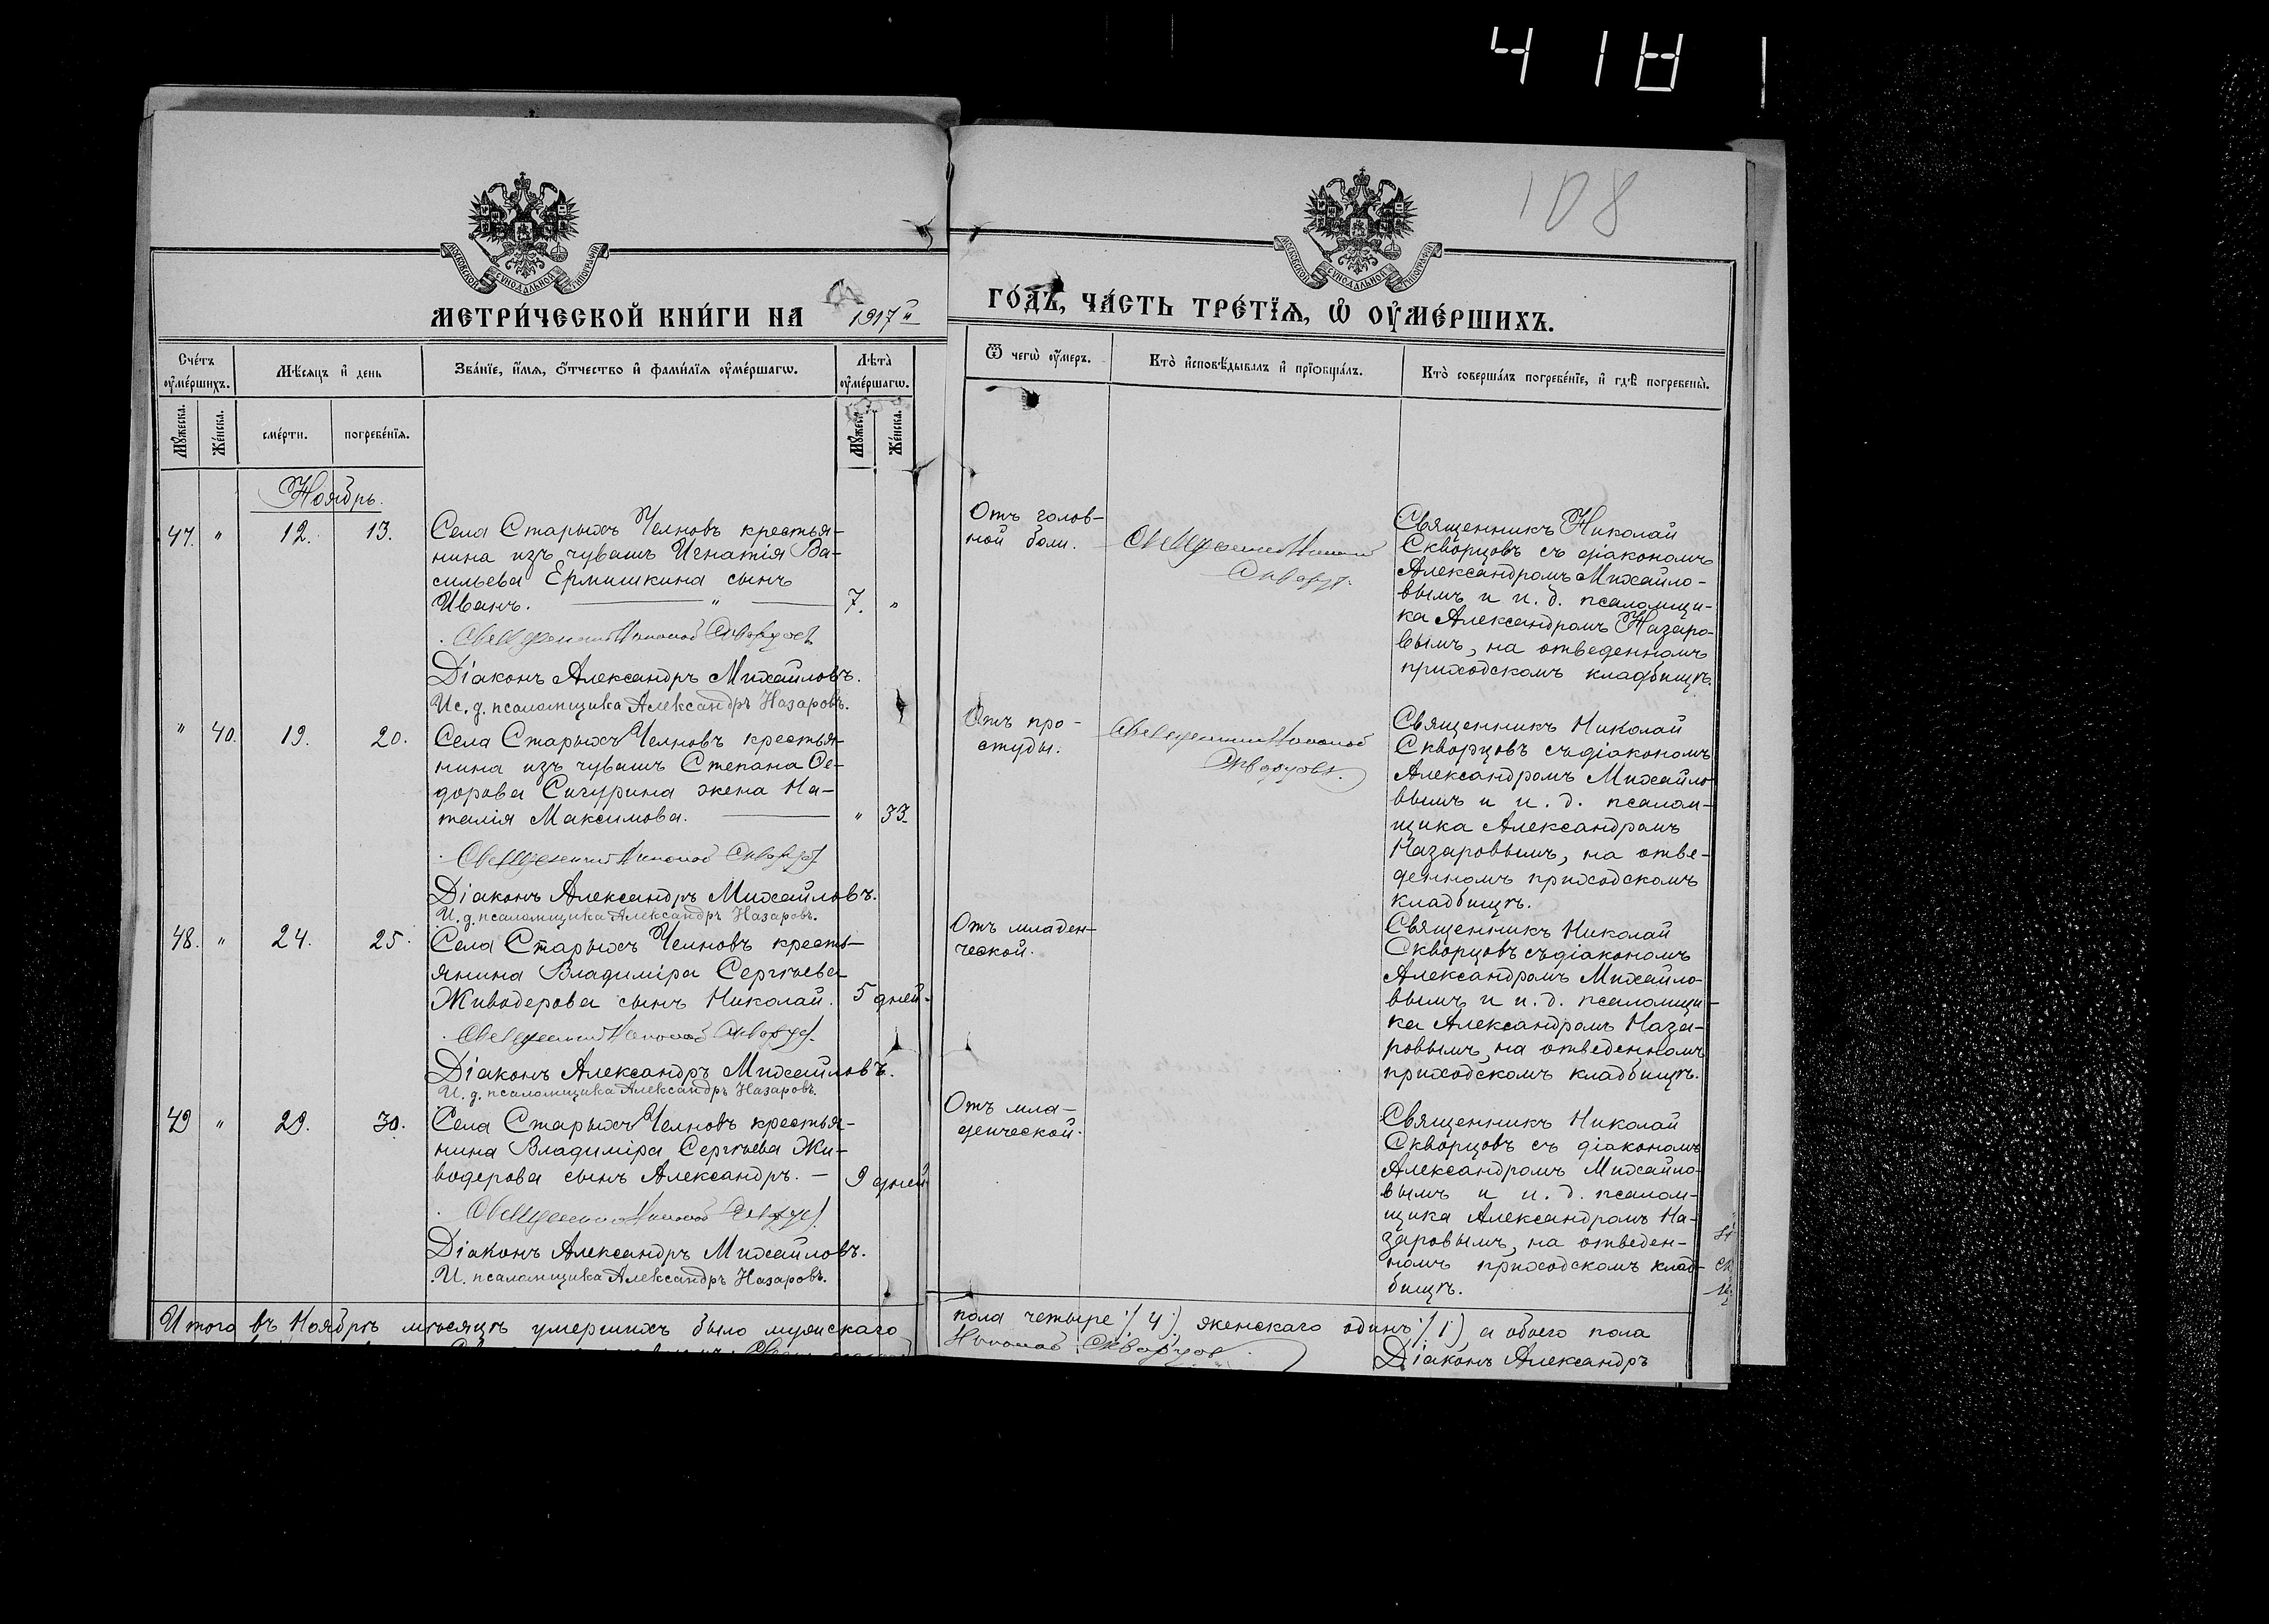 4 18
108
МОСКОВСКОЙ СѴНОДАЛЬНОЙ ТИПОГРАФІИ
МОСКОВСКОЙ СѴНОДАЛЬНОЙ ТИПОГРАФІИ
МЕТРИ́ЧЕСКОЙ КНИ́ГИ НА 1917 й
ГО́ДЪ, ЧА́СТЬ ТРЕ́ТЇѦ, Ѽ ОУ҆МЕ́РШИХЪ.
Сче́тъ оу҆ме́ршихъ.
Мѣ́сяцъ и҆ день
Зва́нїе, и҆́мя, о҆́тчество и҆ фами́лїя оу҆ме́ршагѡ.
Лѣта̀ оу҆ме́ршагѡ.
Ѿ чегѡ̀ оу҆́меръ.
Кто̀ и҆сповѣ́дывалъ и҆ прїѡбща́лъ.
Кто̀ соверша́лъ погребе́нїе, и҆ гдѣ̀ погребены̀.
Мꙋ́жеска.
Же́нска.
сме́рти.
погребе́нїя.
Мꙋ́жеска.
Же́нска.
Ноябрь.
47. " 12. 13.
Села Старыхъ Челновъ крестья-
нина изъ чувашъ Игнатія Ва-
сильева Ермишкина сынъ
Иванъ. — " — 7. "
Священникъ Николай Скворцовъ
Діаконъ Александръ Михайловъ.
Ис. д. псаломщика Александръ Назаровъ.
Отъ голов-
ной боли.
Священникъ Николай
Скворцовъ.
Священникъ Николай
Скворцовъ съ діакономъ
Александромъ Михайло-
вымъ и и. д. псаломщи-
ка Александромъ Назаро-
вымъ, на отведенномъ
приходскомъ кладбищѣ.
" 40. 19. 20.
Села Старыхъ Челновъ крестья-
нина изъ чувашъ Степана Ѳе-
дорова Сигурина жена На-
талія Максимова. — " 33.
Священникъ Николай Скворцовъ
Діаконъ Александръ Михайловъ.
И. д. псаломщика Александръ Назаровъ.
Отъ про-
студы.
Священникъ Николай
Скворцовъ.
Священникъ Николай
Скворцовъ съ діакономъ
Александромъ Михайло-
вымъ и и. д. псалом-
щика Александромъ
Назаровымъ, на отве-
денномъ приходскомъ
кладбищѣ.
48. " 24. 25.
Села Старыхъ Челновъ кресть-
янина Владиміра Сергѣева
Живодерова сынъ Николай. 5 дней.
Священникъ Николай Скворцовъ.
Діаконъ Александръ Михайловъ.
И. д. псаломщика Александръ Назаровъ.
Отъ младен-
ческой.
Священникъ Николай
Скворцовъ съ діакономъ
Александромъ Михайло-
вымъ и и. д. псаломщи-
ка Александромъ Наза-
ровымъ, на отведенномъ
приходскомъ кладбищѣ.
49 " 29. 30.
Села Старыхъ Челновъ крестья-
нина Владиміра Сергѣева Жи-
водерова сынъ Александръ. — 9 дней
Священникъ Николай Скворцовъ.
Діаконъ Александръ Михайловъ.
И. псаломщика Александръ Назаровъ.
Отъ мла-
денческой.
Священникъ Николай
Скворцовъ съ діакономъ
Александромъ Михайло-
вымъ и и. д. псалом-
щика Александромъ На-
заровымъ, на отведен-
номъ приходскомъ клад-
бищѣ.
Итого въ Ноябрѣ мѣсяцѣ умершихъ было мужскаго
пола четыре /4/ женскаго одинъ /1/ а обоего пола
Николай Скворцов
Діаконъ Александръ